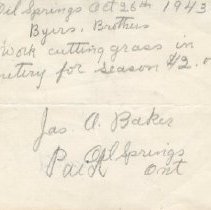 Oil Springs Oct 26th 1943
Byers, Brothers
Work cutting grass in
metery for season $2.0
Jas. A. Baker
Oil Springs
Paid Ont